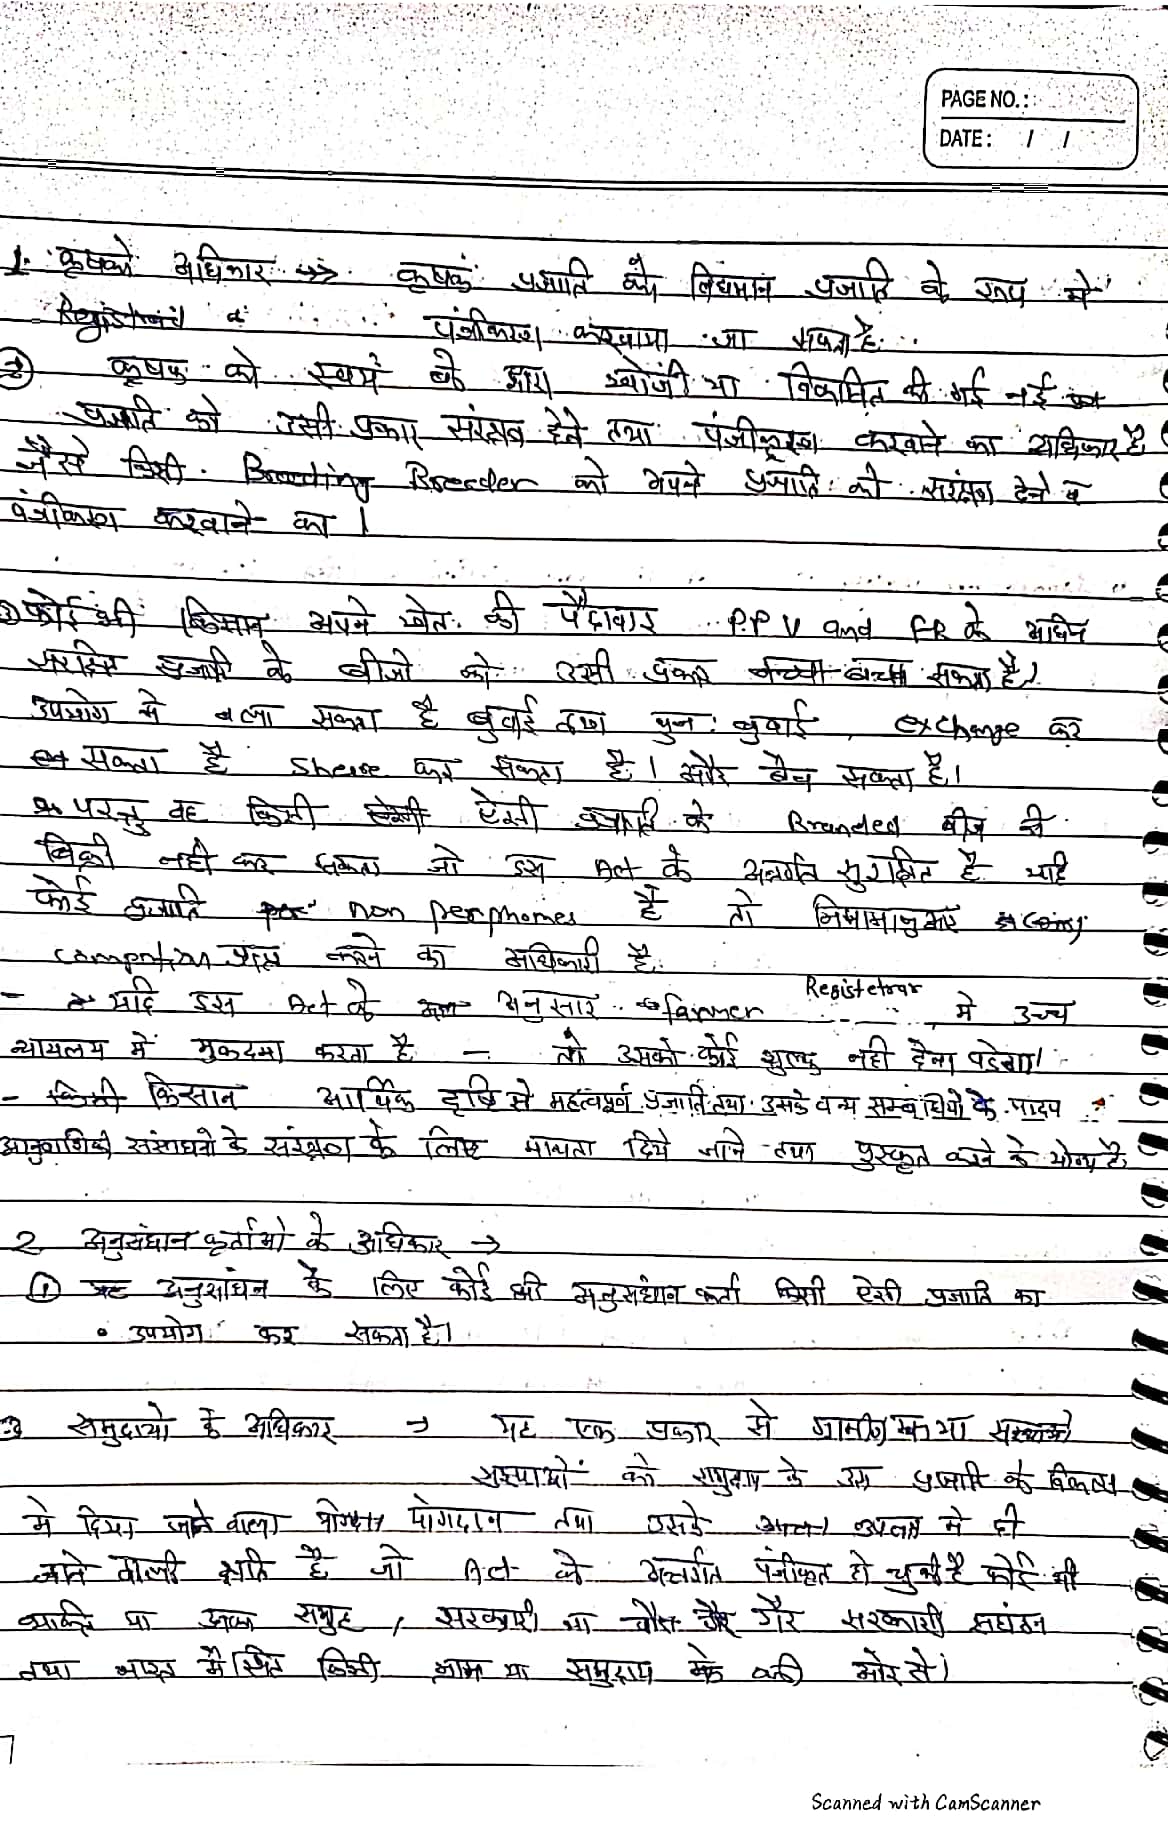 PAGE NO.:
DATE: / /
1. कृषको अधिकार →→ कृषक प्रजाति को विधमान प्रजाति के रूप मे
पंजीकरण करवाया जा सकता है.
② कृषक को स्वयं के द्वारा खोजी या विकसित की गई नई
प्रजाति को उसी प्रकार संरक्षण देने तथा पंजीकरण करवाने का अधिकार है
जैसे किसी Breeder को अपने प्रजाति को संरक्षण देने व
पंजीकरण करवाने का |
③ कोई भी किसान अपने खेत की पैदावार P.P.V and FR के अधिन
संरक्षित प्रजाति के बीजो को उसी प्रकार सकता है।
उपयोग मे ला सकता है बुवाई तथा पुन: बुवाई, exchange कर
सकता है share कर सकता है। और बेच सकता है।
परन्तु वह किसी ऐसी प्रजाति के Branded बीज की
बिक्री नही कर सकता जो इस Act के अन्तर्गत सुरक्षित है यदि
कोई प्रजाति non है तो नियामानुसार
प्राप्त करने का अधिकारी है.
- यदि इस Act के अनुसार farmer Registetrar मे उच्च
न्यायलय में मुकदमा करता है — तो उसको कोई शुल्क नही देना पडेगा।
- किसान आर्थिक दृष्टि से महत्वपूर्ण प्रजाति तथा उसके वन्य सम्बंधियो के पादप
आनुवाशिकी संसाधनो के संरक्षण के लिए मान्यता दिये जाने तथा पुरस्कृत करने के योग्य है
2 अनुसंधान कर्ताओ के अधिकार →
① अनुसांधन के लिए कोई भी अनुसंधान कर्ता किसी ऐसी प्रजाति का
• उपयोग कर सकता है।
3 समुदायो के अधिकार → यह एक प्रकार से ग्रामीण या
संस्थाओं को समुदाय के उस प्रजाति के विकास
मे दिया जाने वाला योगदान तथा उसके मे ही
जाने वाली क्षति है जो Act के अन्तर्गत पंजीकृत हो चुकी है कोई भी
व्यक्ति या समुह, सरकारी या गैर सरकारी संघठन
तथा भारत मे स्थित किसी ग्राम या समुदाय की ओर से।
Scanned with CamScanner